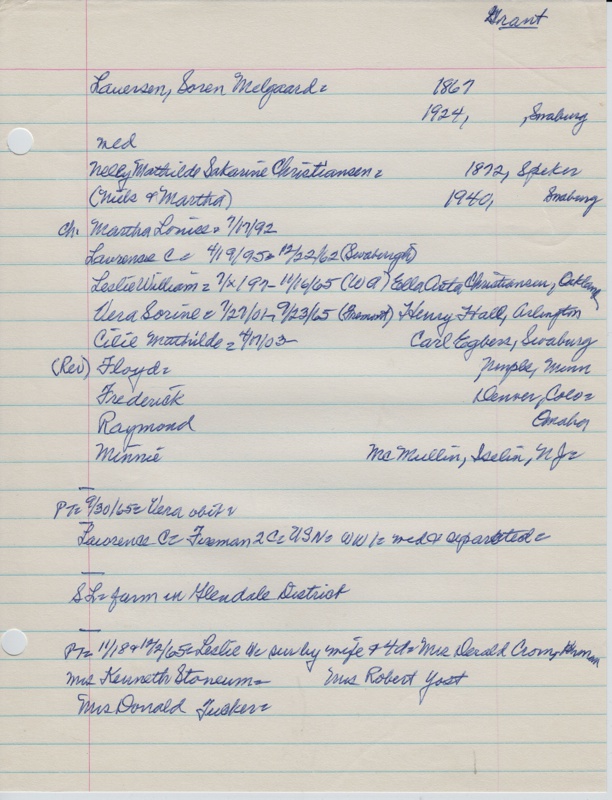 Grant
Lauersen, Soren Melgaard = 1867
1924, , Swaburg
med
Nelly Mathilde Sakarine Christiansen = 1872, Spiker
(Niels & Martha) 1940, Swaburg
Ch. Martha Louise = 7/17/92
Lawrence C = 4/19/95 = 12/22/62 (Swaburgh)
Leslie William = 7/x/97 - 11/16/65 (WA) Ella Asta Christiansen, Oakland
Vera Sorine = 7/27/01 - 9/23/65 (Fremont) Henry Hall, Arlington
Cilie Mathilde = 4/17/03 - Carl Egbers, Swaburg
(Rev) Floyd = Minn
Frederick Denver, Colo =
Raymond Omaha
Minnie McMullin, Iselin, NJ =
PT = 9/30/65 = Vera obit =
Lawrence C = Fireman 2C = USN = WW1 = med & separated =
SL = farm in Glendale District
PT = 11/18 & 12/2/65 = Leslie W = surby wife & 4d = Mrs Derald Crom, Herman
Mrs Kenneth Stoneum = Mrs Robert Yost
Mrs Donald Tucker =